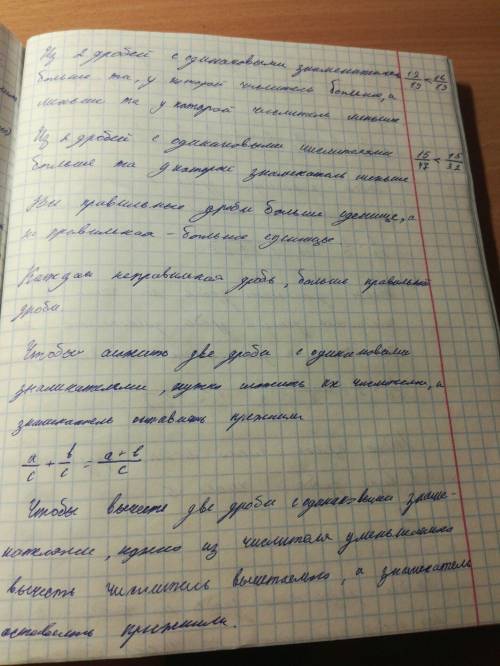 Из 2 дробей с одинаковыми знаменателями 12/13 < 16/13
больше та, у которой числитель больше, а
меньше та у которой числитель меньше
Из 2 дробей с одинаковыми числителями 15/47 < 15/32
больше та у которой знаменатель меньше
правильные дроби больше еденице, а
не правильная - больше еденицы.
Каждая неправильная дробь, больше правильной
дроби.
Чтобы сложить две дроби с одинаковыми
знаменателями, нужно сложить их числители, а
знаменатель оставить прежним
a/c + b/c = a+b/c
Чтобы вычесть две дроби с одинаковыми знаме-
нателями, нужно из числителя уменьшаемого
вычесть числитель вычитаемого, а знаменатель
оставить прежним.